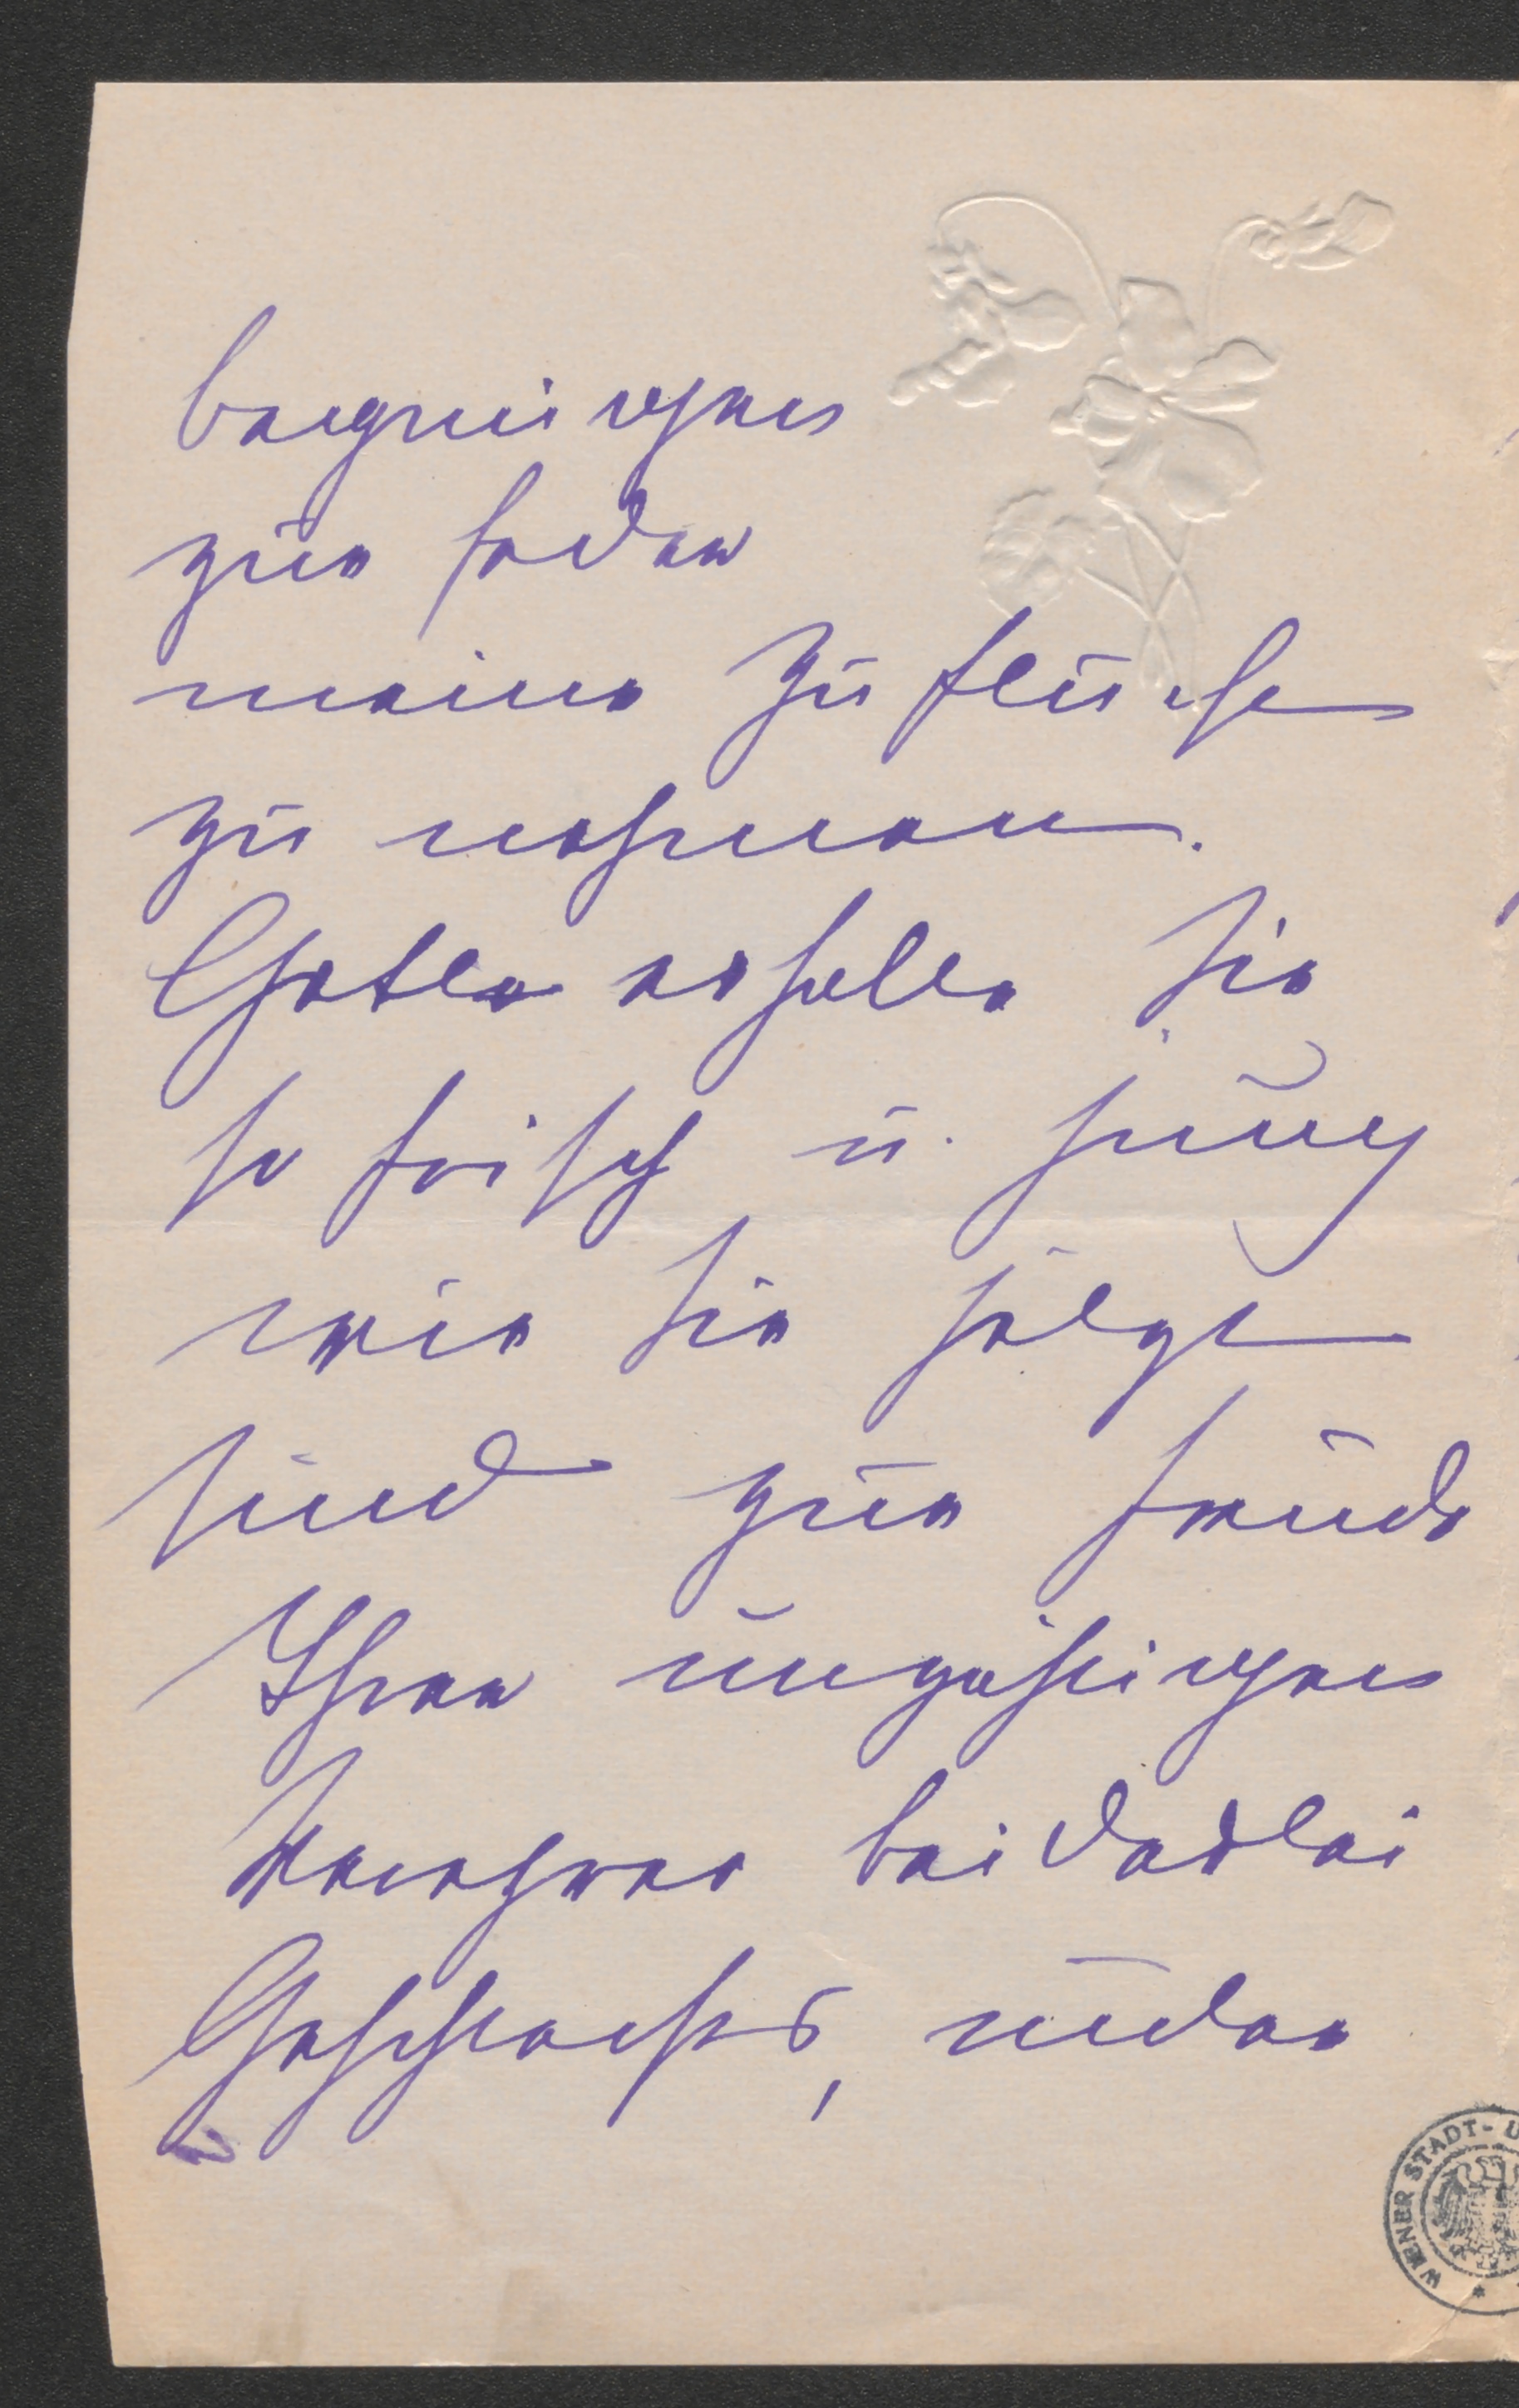 begnügen
zur Feder
meine Zuflucht
zu nehmen.
Gott erhalte Sie
so frisch u. jung
wie Sie jetzt
sind zur Freude
Ihrer unzähligen
Verehrer beiderlei
Geschlechts, unter
WIENER STADT- U